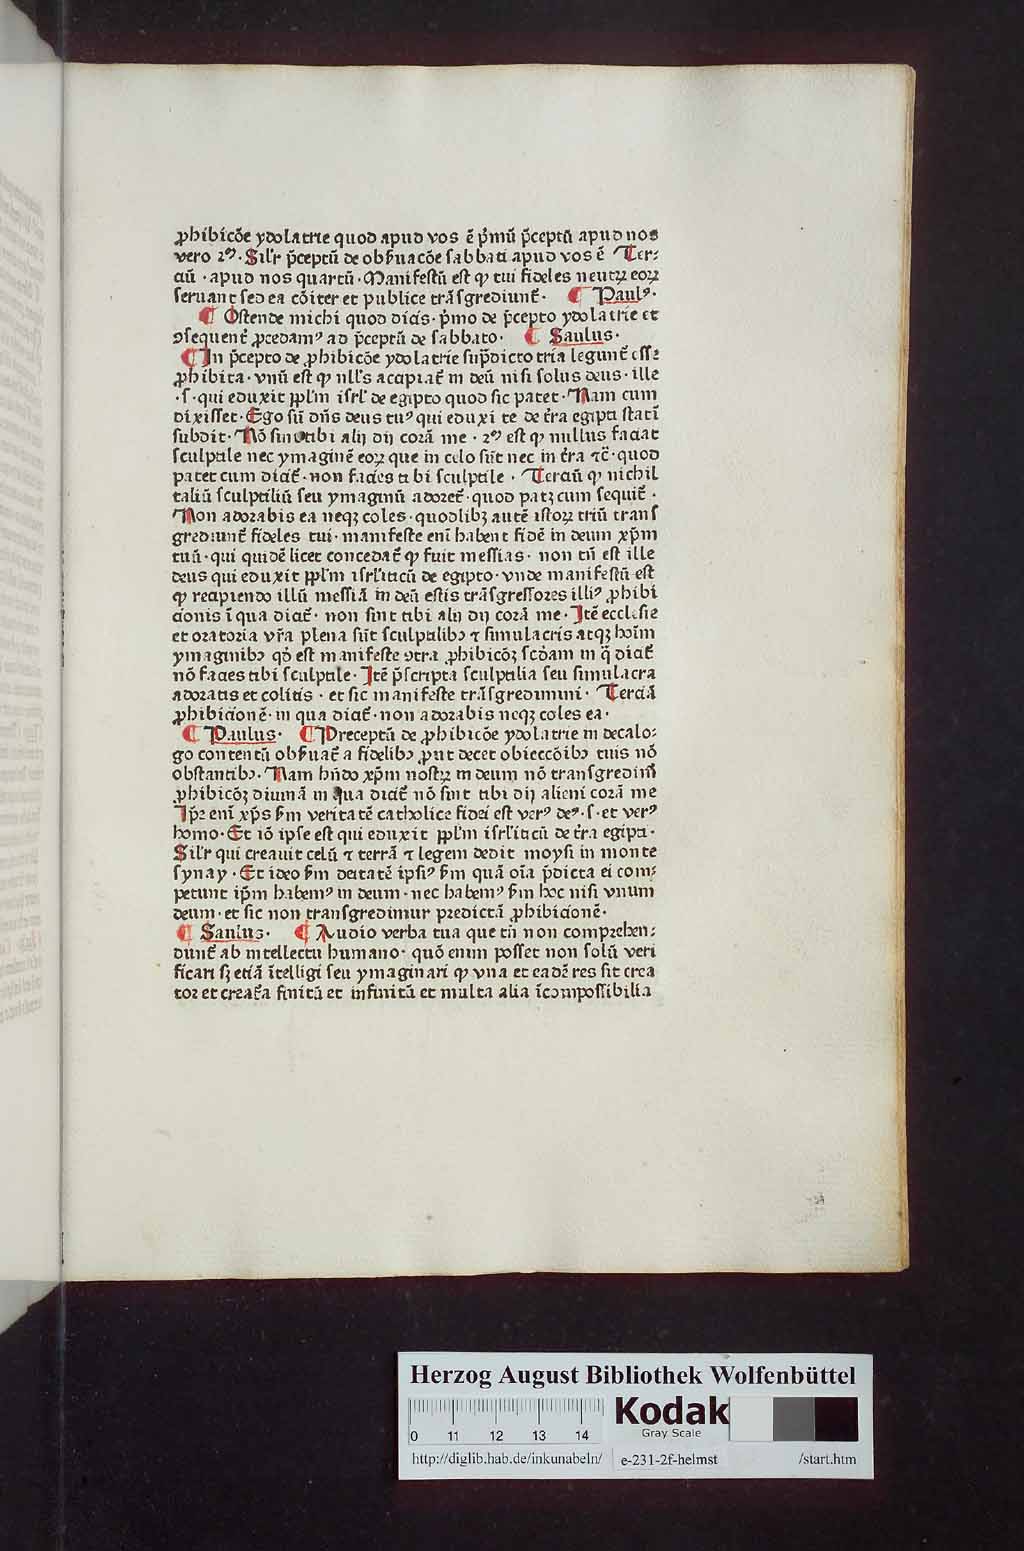 ꝓhibicōe ydolatrie quod apud vos ē p̄mū p̄ceptū apud nos
vero 2ꝰ. Silr̄ p̄ceptū de obẜuacōe sabbati apud vos ē Ter⸗
ciū · apud nos quartū · Manifestū est ꝙ tui fideles neutrꝝ eoꝝ
seruant sed ea cōiter et publice trāsgrediunt̄. ¶ Paulꝰ.
¶ Ostende michi quod dicis · p̄mo de p̄cepto ydolatrie et
ꝯsequent̄ ꝓcedamꝰ ad p̄ceptū de sabbato. ¶ Saulus.
¶ In p̄cepto de ꝓhibicōe ydolatrie sup̄dicto tria legunt̄ esse
ꝓhibita · vnū est ꝙ null's accipiat̄ in deū nisi solus deus · ille
·s· qui eduxit ppl'm isrl' de egipto quod sic patet · Nam cum
dixisset · Ego sū dn̄s deus tuꝰ qui eduxi te de t̄ra egipti statī
subdit · Nō sint tibi alij dij corā me · 2ꝰ est ꝙ nullus faciat
sculptile nec ymaginē eoꝝ que in celo sūt nec in t̄ra ⁊c̄ · quod
patet cum dicit̄ · non facies tibi sculptile · Terciū ꝙ nichil
taliū sculptiliū seu ymaginū adoret̄ · quod patꝫ cum sequit̄ ·
Non adorabis ea neqꝫ coles · quodlibꝫ autē istoꝝ triū trans
grediunt̄ fideles tui · manifeste enī habent fidē in deum xp̄m
tuū · qui quidē licet concedat̄ ꝙ fuit messias · non tn̄ est ille
deus qui eduxit ppl'm isrl'iticū de egipto · vnde manifestū est
ꝙ recipiendo illū messiā in deū estis trāsgressores illiꝰ ꝓhibi
cionis ī qua dicit̄ · non sint tibi alij dij corā me · Itē ecclesie
et oratoria vr̄a plena sūt sculptilibꝫ ⁊ simulacris atqꝫ hoīm
ymaginibꝫ qd̄ est manifeste ꝯtra ꝓhibicōꝫ scd̄am in q̄ dicit̄
nō facies tibi sculptile · Itē p̄scripta sculptilia seu simulacra
adoratis et colitis · et sic manifeste trāsgredimini · Terciā
ꝓhibicionē · in qua dicit̄ · non adorabis neqꝫ coles ea ·
¶ Paulus · ¶ Preceptū de ꝓhibicōe ydolatrie in decalo⸗
go contentū obẜuat̄ a fidelibꝫ ꝓut decet obieccōibꝫ tuis nō
obstantibꝫ · Nam hn̄do xp̄m nostrꝝ in deum nō transgredim̄
ꝓhibicōꝫ diuinā in qua dicit̄ nō sint tibi dij alieni corā me
Ip̄e enī xp̄s ẜm veritatē catholice fidei est verꝰ deꝰ · s · et verꝰ
homo · Et iō ipse est qui eduxit ppl'm isrl'iticū de t̄ra egipti ·
Silr̄ qui creauit celū ⁊ terrā ⁊ legem dedit moysi in monte
synay · Et ideo ẜm deitatē ipsiꝰ ẜm quā oīa p̄dicta ei com⸗
petunt ip̄m habemꝰ in deum · nec habemꝰ ẜm hoc nisi vnum
deum · et sic non transgredimur predictā ꝓhibicionē ·
¶ Saulus · ¶ Audio verba tua que tn̄ non comprehen⸗
dunt̄ ab intellectu humano · quō enim posset non solū veri
ficari sꝫ etiā ītelligi seu ymaginari ꝙ vna et eadē res sit crea
tor et creat̄a finitū et infinitū et multa alia īcompossibilia
Herzog August Bibliothek Wolfenbüttel
0 11 12 13 14
Kodak
Gray Scale
http://diglib.hab.de/inkunabeln/ e-231-2f-helmst /start.htm